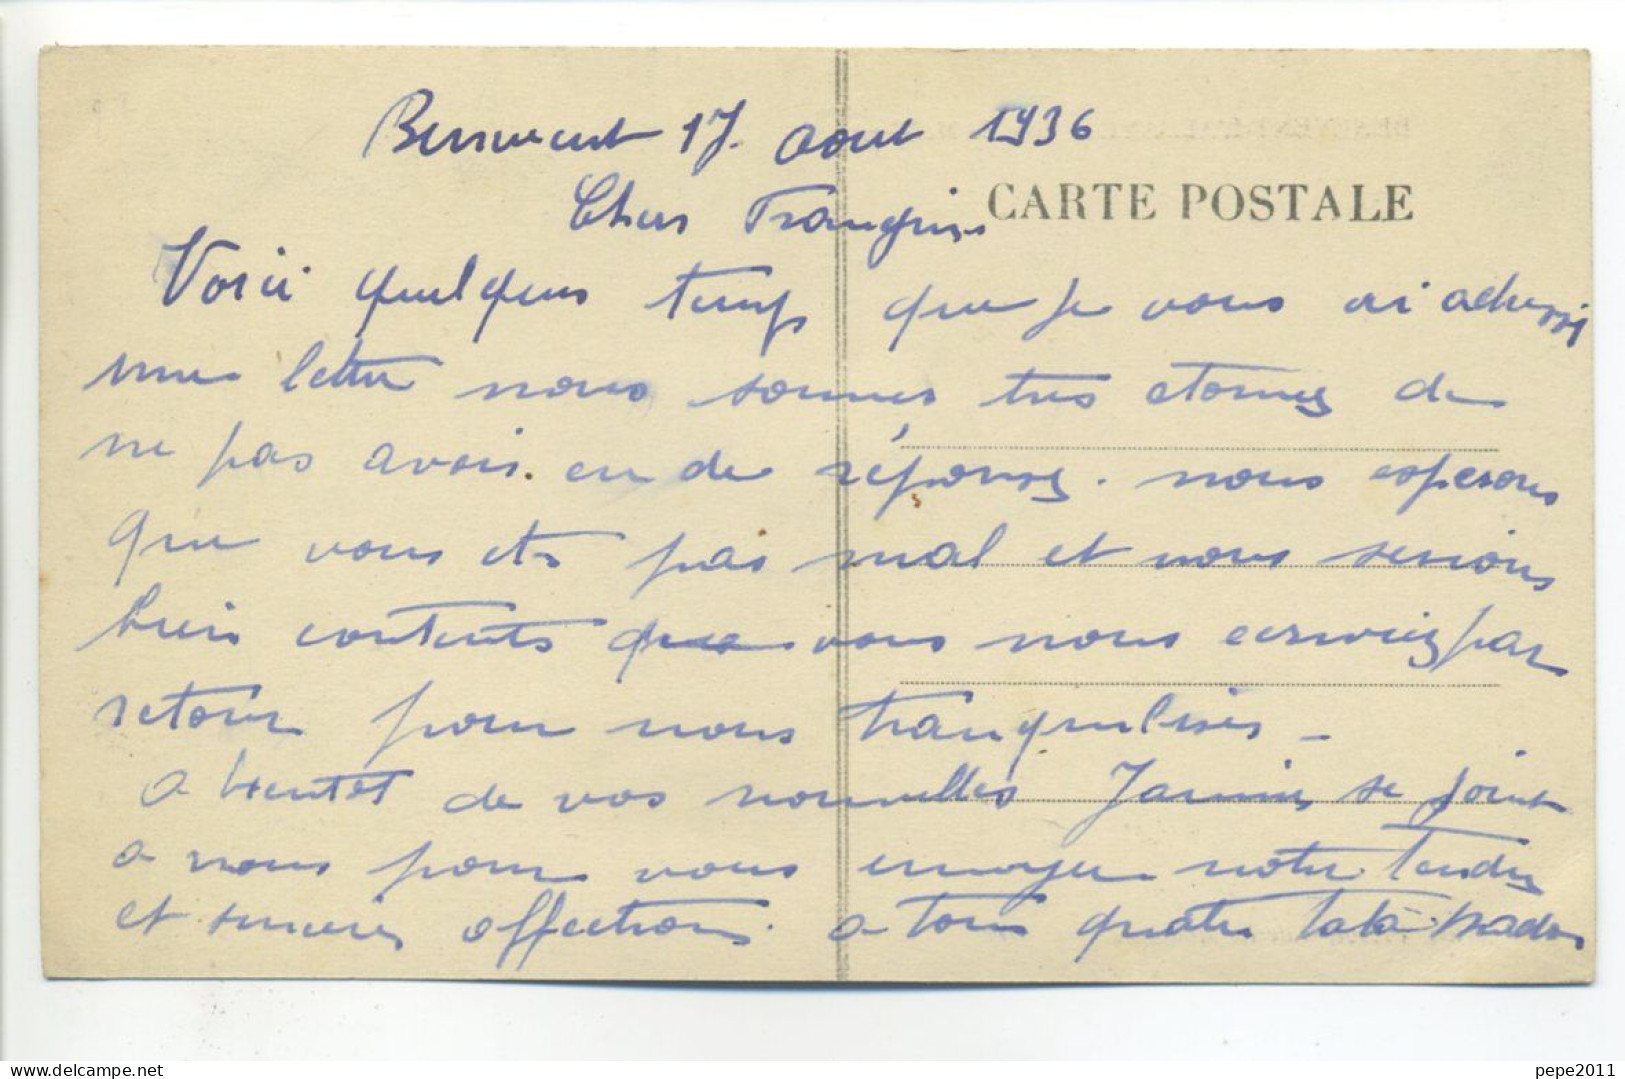 17. aout 1936
Chers
CARTE POSTALE
Voici quelques temps que je vous ai adressé
une lettre nous sommes tres etonnes de
ne pas avoir eu de réponse. nous esperons
que vous etes pas mal et nous serions
bien contents que vous nous ecriviez par
retour pour nous tranquilises -
a bientot de vos nouvelles Janine se joint
a nous pour vous envoyer notre tendre
et sincere affections. a tous quatre
delcampe.net
pepe2011